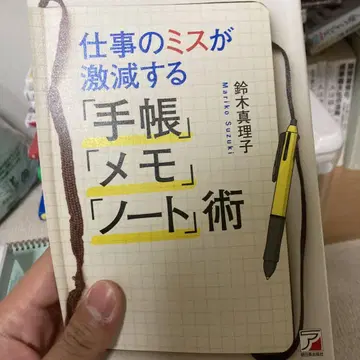 仕事のミスが
激減する
「手帳」
「メモ」
「ノート」術
鈴木真理子
Mariko Suzuki